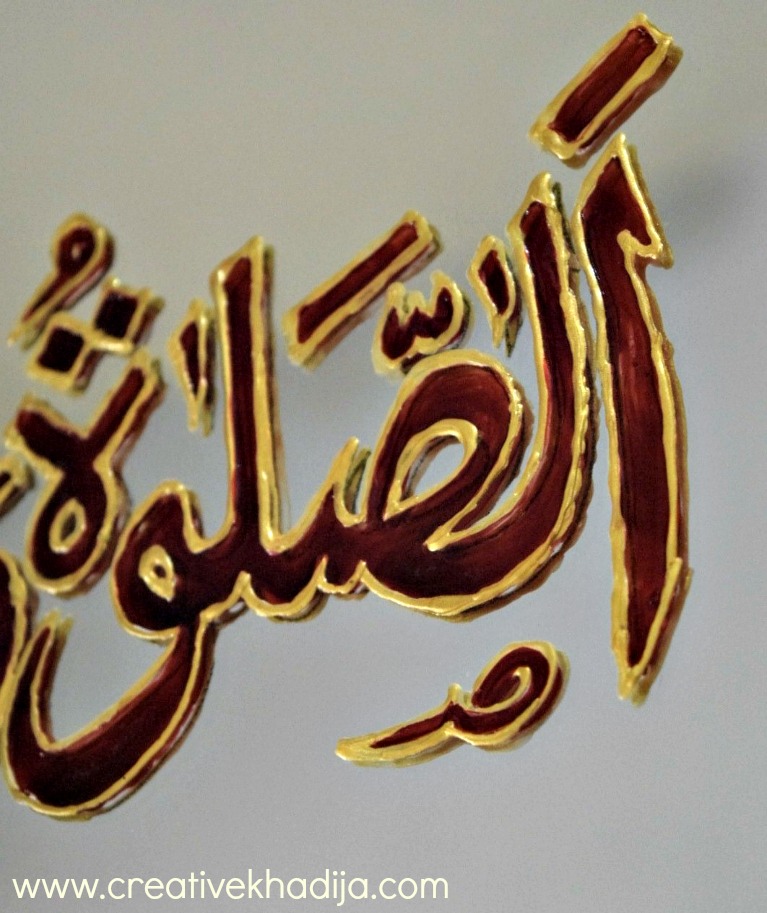 اَلصَّلٰوةُ
www.creativekhadija.com